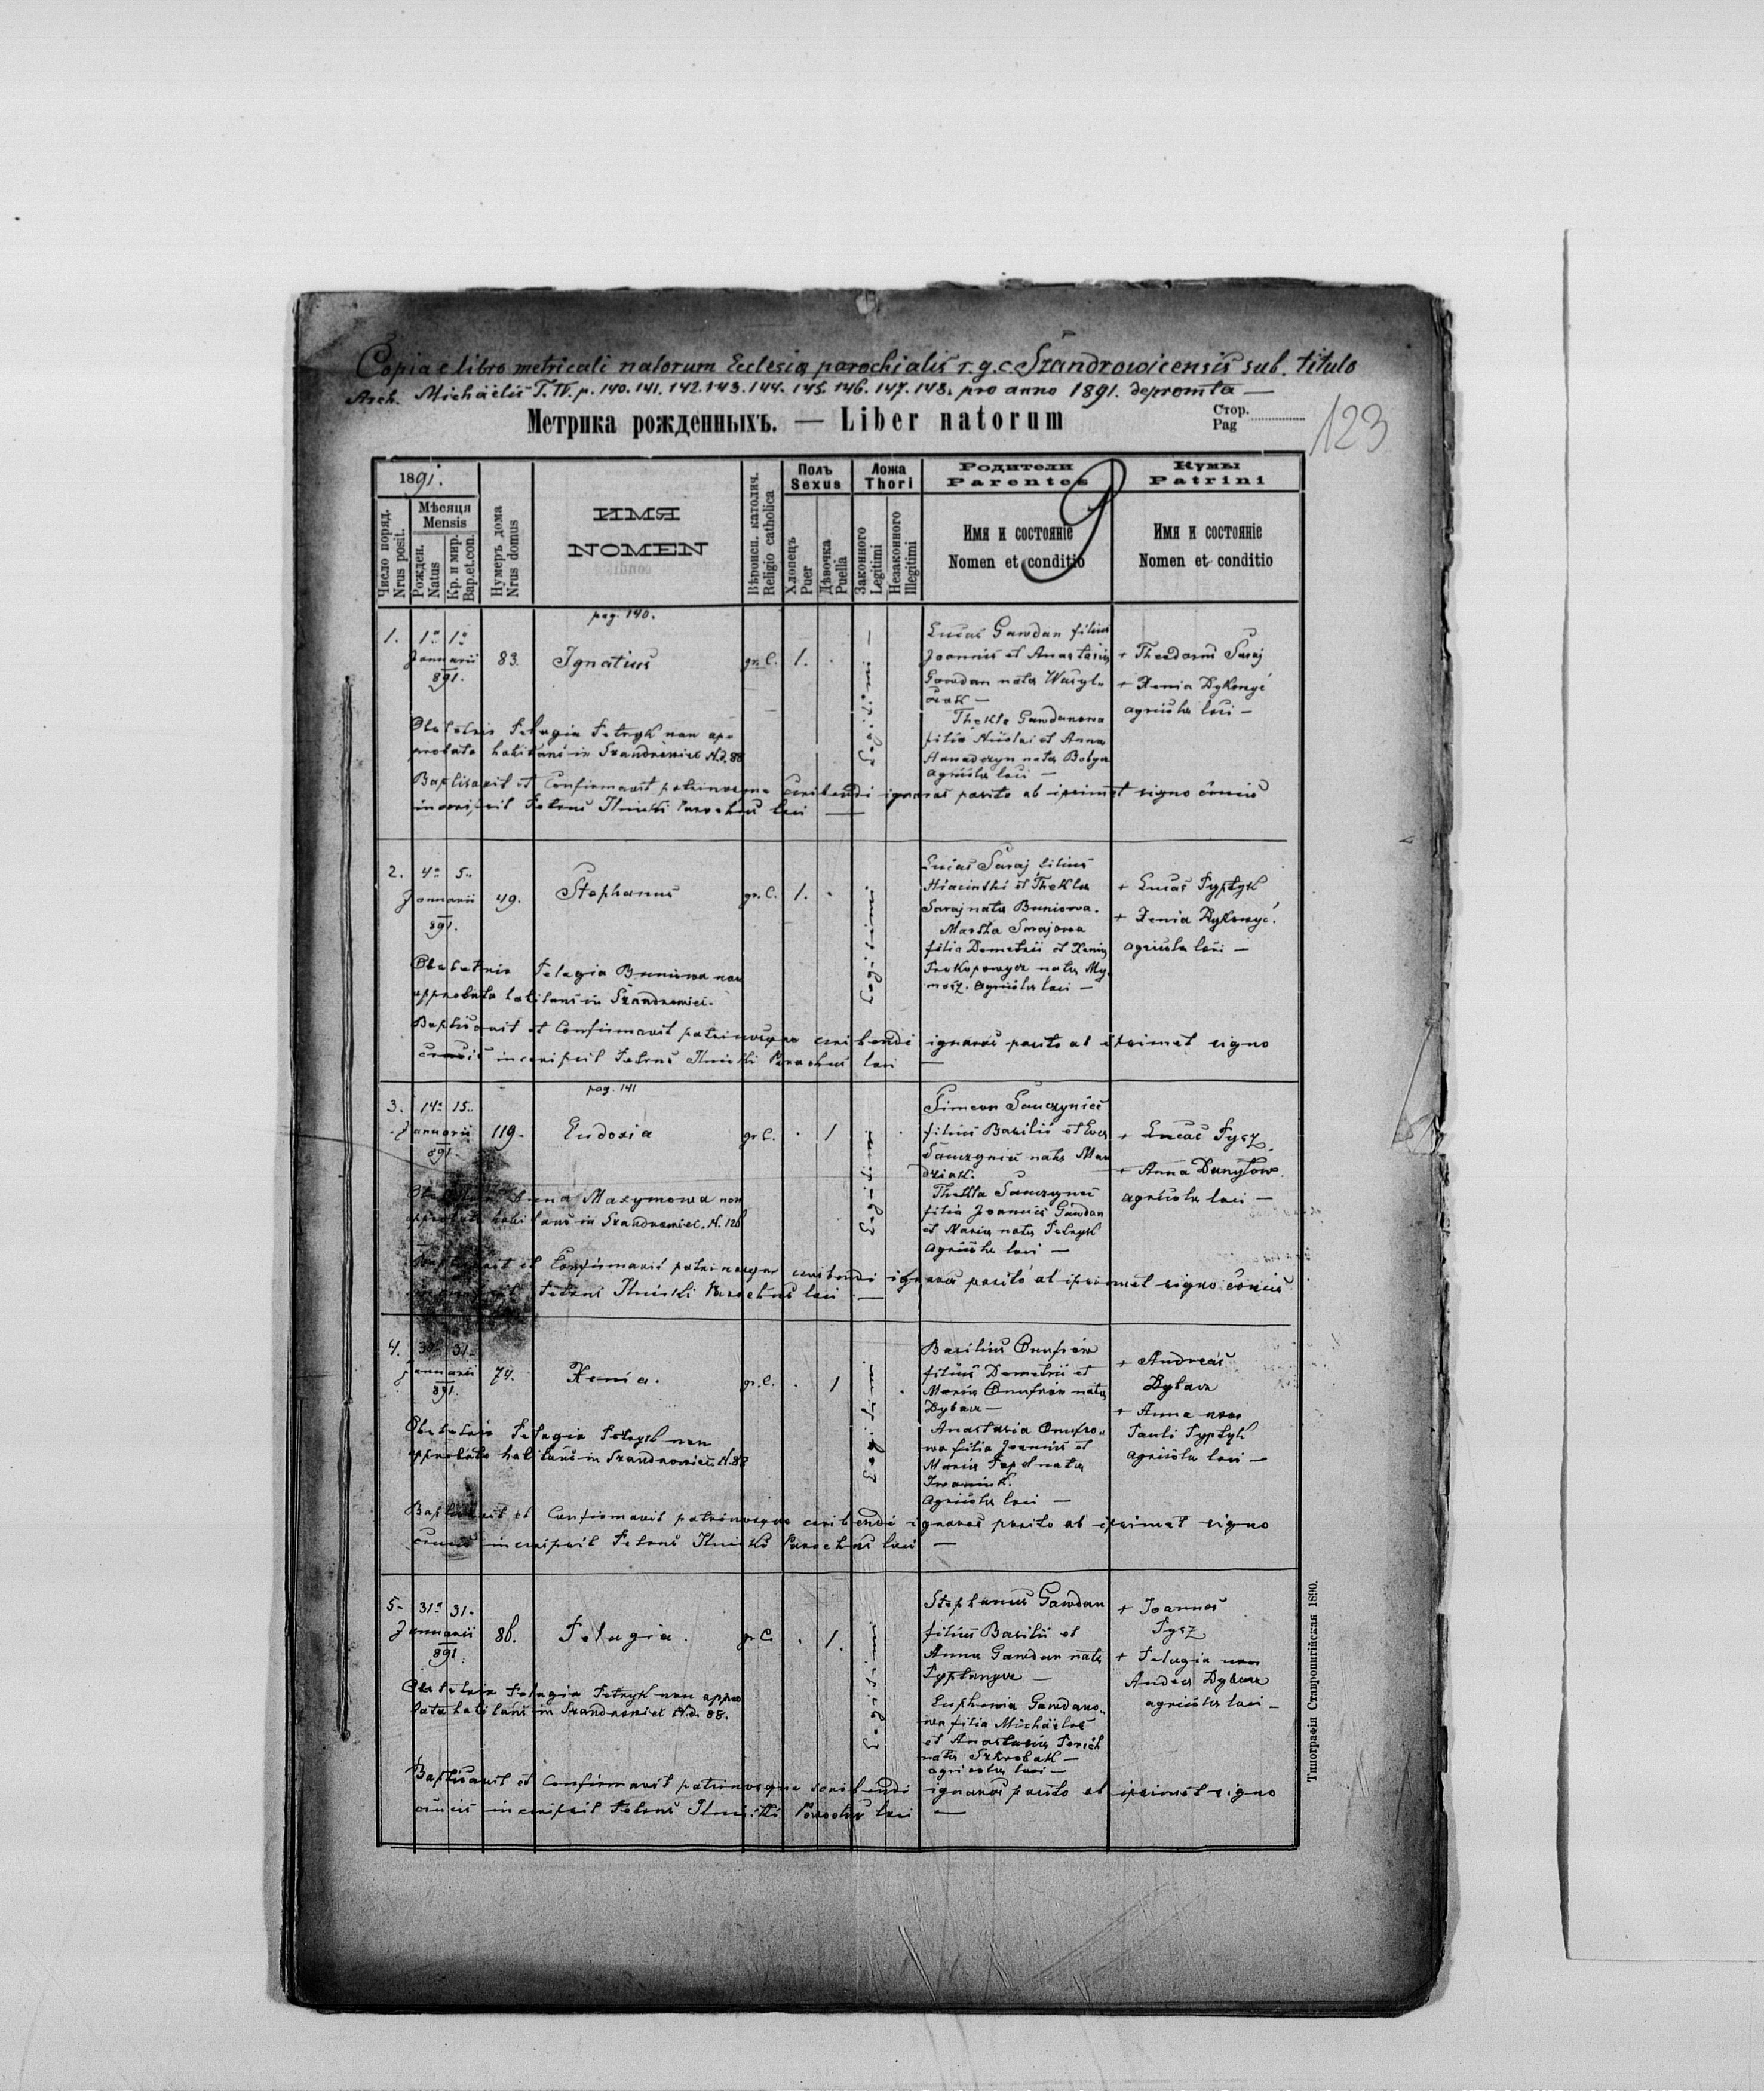 Copia e libro metricali natorum Ecclesiæ parochialis r. g. c. Szandrowicensis sub. titulo
Arch. Michaëlis T. IV. p. 140. 141. 142. 143. 144. 145. 146. 147. 148. pro anno 1891. depromta —
Метрика рожденныхъ. — Liber natorum
Стор.
Pag
123
1891.
Число поряд.
Nrus posit.
Мѣсяця
Mensis
Рожден.
Natus
Кр. и мир.
Bap.et.con.
Нумеръ дома
Nrus domus
ИМЯ
NOMEN
Вѣроисп. католич.
Religio catholica
Полъ
Sexus
Хлопецъ
Puer
Дѣвочка
Puella
Ложа
Thori
Законного
Legitimi
Незаконного
Illegitimi
Родители
Parentes
Имя и состояніе
Nomen et conditio
Кумы
Patrini
Имя и состояніе
Nomen et conditio
pag. 140.
1. 1a 1a
Januarii
891.
83.
Ignatius
gr. C. 1.
Lucas Gawdan filius
Joannis et Anastasiæ
Gawdan nata Wasyl-
czak —
Thekla Gawdanowa
filia Nicolai et Anna
nata
agricolæ loci —
+ Theodorus Saraj
+ Xenia
agricolæ loci —
Obstetrix Pelagia Petryk non apro
probata habitans in Szandrowiec N.d. 88
Baptisavit et Confirmavit patrinosque scribendi ignaros posito ab ipsimet signo crucis
inscripsit Petrus Ilnicki Parochus loci —
2. 4a 5
Januarii
891.
49.
Stephanus
gr. C. 1.
Lucas Saraj filius
Hiacinthi et Thekla
Saraj nata Buniowa.
Martha Sarajowa
filia Demetrii et Xenia
Prokopowycz nata My-
agricolæ loci —
+ Lucas Typtyk
+ Xenia
agricolæ loci —
Obstetrix Pelagia Buniowa non
approbata habitans in Szandrowiec.
Baptisavit et Confirmavit patrinosque scribendi ignaros posito ab ipsimet signo
crucis inscripsit Petrus Ilnicki Parochus loci —
pag. 141
3. 14a 15
Januarii
891.
119.
Eudoxia
gr. C. 1
Simeon Sauczynicz
filius Basilii et Eva
Sauczynicz nata Man
dziak.
Thekla Sauczynicz
filia Joannis Gawdan
et Maria nata Petryk
agricolæ loci —
+ Lucas Tysz
+ Anna Danylow
agricolæ loci —
Obstetrix Anna Maxymowa non
approbata habitans in Szandrowiec. N. 126
Baptisavit et Confirmavit patrinosque scribendi ignaros posito ab ipsimet signo crucis
inscripsit Petrus Ilnicki Parochus loci —
4. 30 31
Januarii
891.
74.
Xenia.
gr. C. 1
Basilius Onufrów
filius Demetrii et
Maria Onufrów nata
Dybacz —
Anastasia Onufro-
wa filia Joannis et
Maria nata
agricolæ loci —
+ Andreas
Dybacz
+ Anna uxor
Pauli Typtyk
agricolæ loci —
Obstetrix Pelagia Petryk non
approbata habitans in Szandrowiec N. 88
Baptisavit et Confirmavit patrinosque scribendi ignaros posito ab ipsimet signo
crucis inscripsit Petrus Ilnicki Parochus loci —
5. 31a 31
Januarii
891.
86.
Pelagia.
gr. C. 1.
Stephanus Gawdan
filius Basilii et
Anna Gawdan nata
—
Euphemia Gawdano-
wa filia Michaëlis
et Anastasia
nata Szkrobak —
agricolæ loci —
+ Joannes
Tysz
+ Pelagia uxor
Andrea Dybacz
agricolæ loci —
Obstetrix Pelagia Petryk non appro
bata habitans in Szandrowiec N.d. 88.
Baptisavit et Confirmavit patrinosque scribendi ignaros posito ab ipsimet signo
crucis inscripsit Petrus Ilnicki Parochus loci —
Типографія Ставропигійская 1890.